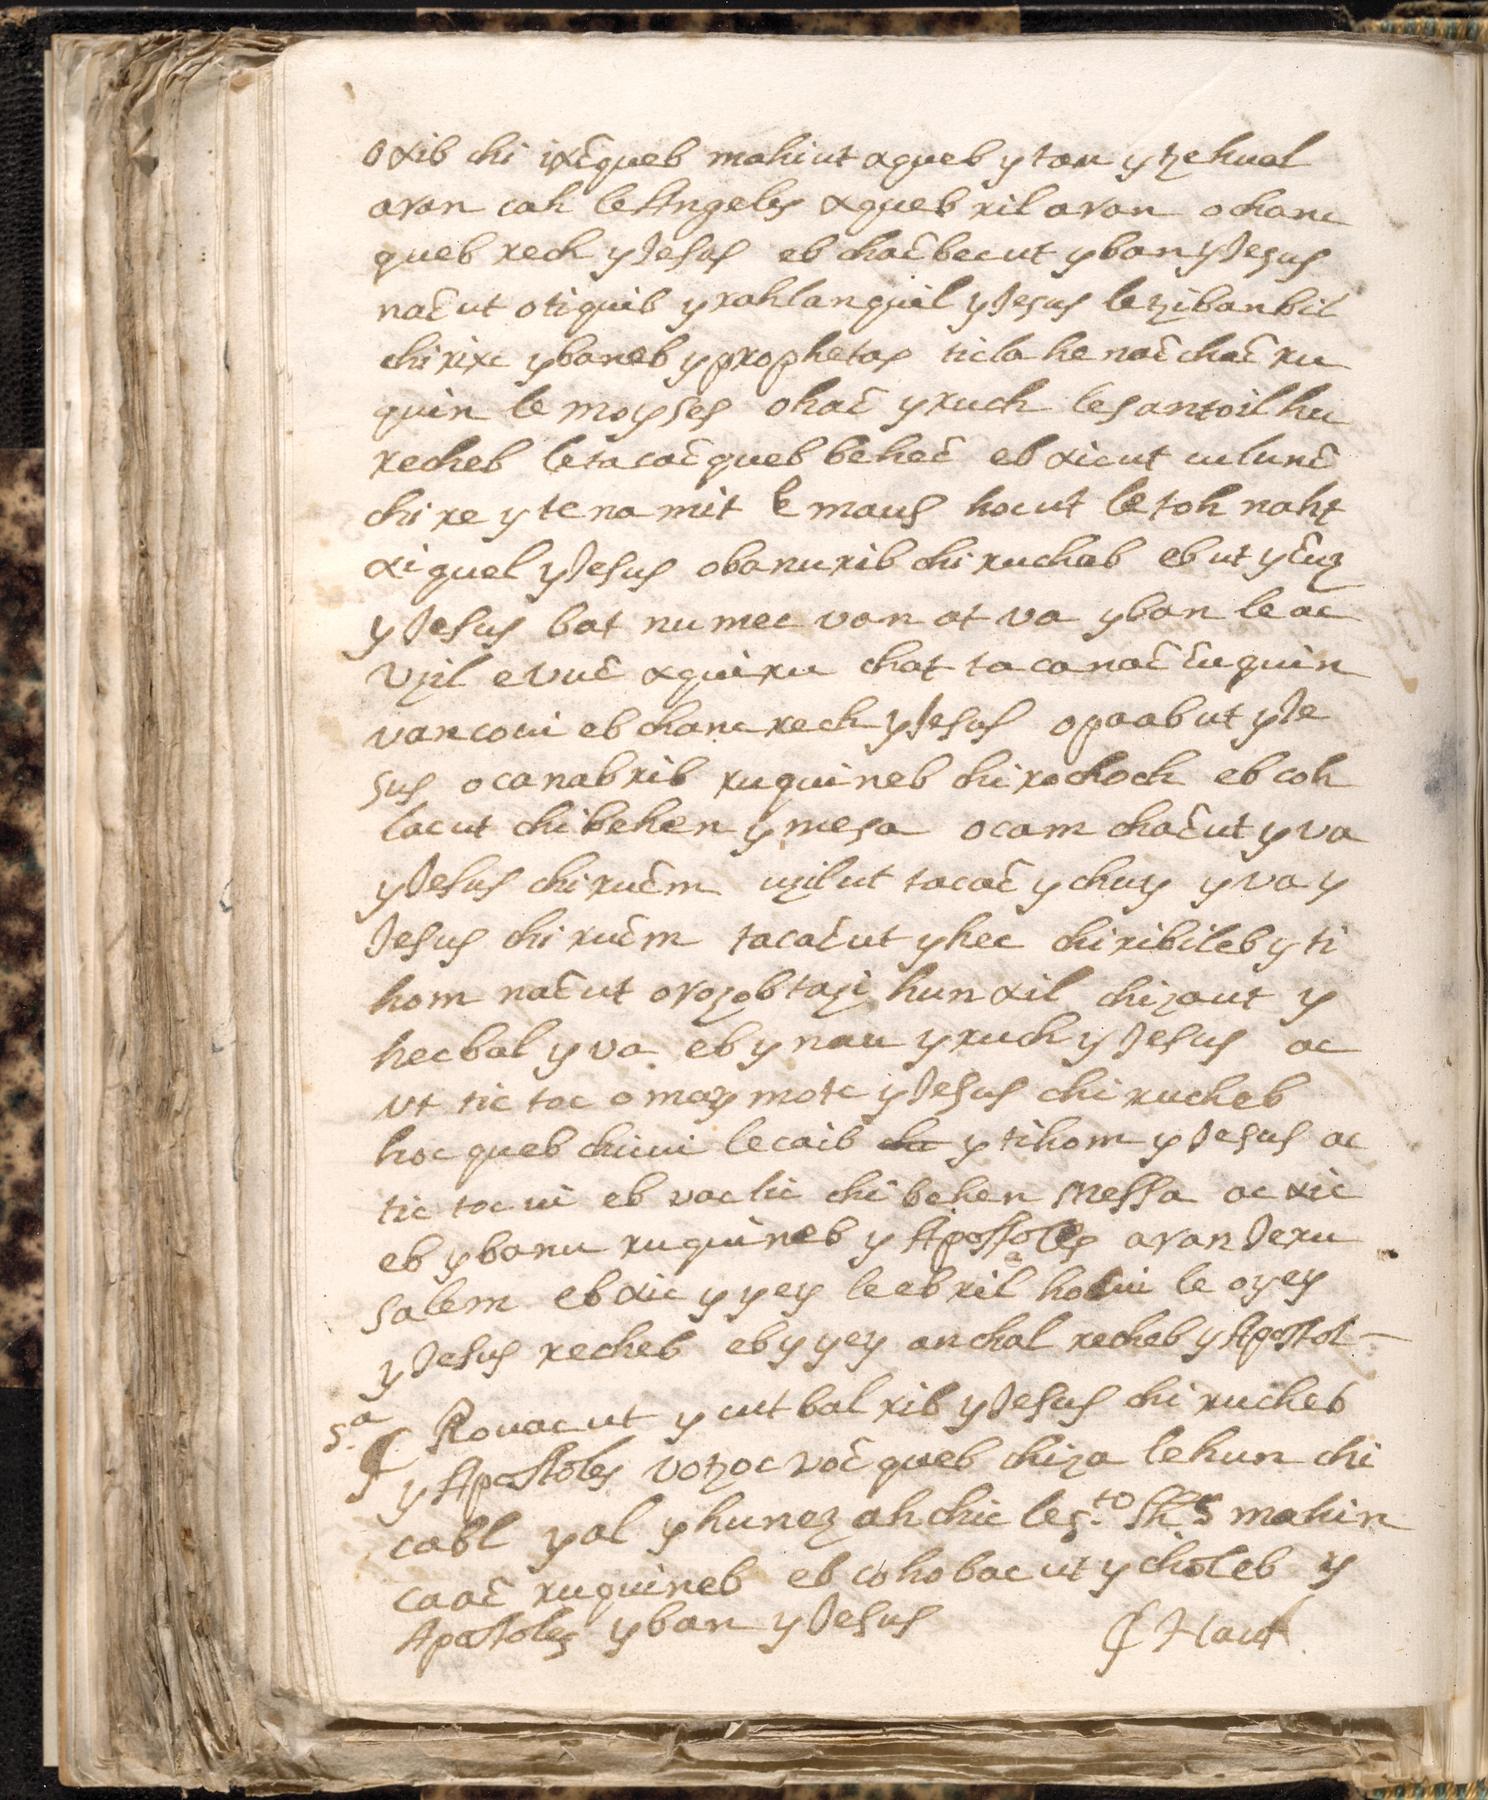 oxib chi ixc̃queb mahiut xqueb y tau y tzehual
aran cah le Angeles xqueb ril aran o chanc
queb rech y Jesus eb chac̃becut y ban y Jesus
nac̃ut otiquib y rahlanquil y Jesus le tzibanbil
chi rixc y baneb y prophetas ticlahe nac̃ chac̃ ru
quin le moyses ohac̃ y ruch le santoil hu
recheb letacac̃ queb behec̃ eb xicut culunc̃
chi re y tenamit Emaus hocut le toh naht
xiquel y Jesus obanurib chi ruchab eb ut y c̃uz
y Jesus bat nu mec van at va y ban le ac
vzil evuc̃ xquiru chat tacanac̃ c̃uquin
vancoui eb chanc rech y Jesus opaab ut y Je
sus ocanabrib ruquineb chi rochoch eb coh
lacut chi behen y mesa ocam chac̃ut y va
y Jesus chi ruc̃m uzilut tacac̃ y chuy y va y
Jesus chi ruc̃m tacac̃ut y hec chi ribileb y ti
hom nac̃ut orozobtazi hunxil chizaut y
hecbal y va eb y nau y ruch y Jesus ac
ut tic toc o maymotc y Jesus chi rucheb
hoc queb chiui lecaib y tihom y Jesus ac
tic toc ui eb vaclic chi behen messa ac xic
eb y banu ruquineb y Apostoles aran Jeru
salem eb xic y yey leeb ril hocui le oyey
y Jesus recheb eb y yey anchal recheb y Apostol
5.ª Rouac ut y cutbal rib y Jesus chi rucheb
y Apostoles votzoc voc̃ queb chiza lehun chi
cabl yal y hunez ah chic les.to SS mahin
caac̃ ruquineb eb cohobac ut y choleb y
Apostoles y ban y Jesus Haut